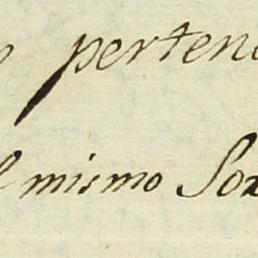 perten
l mismo So